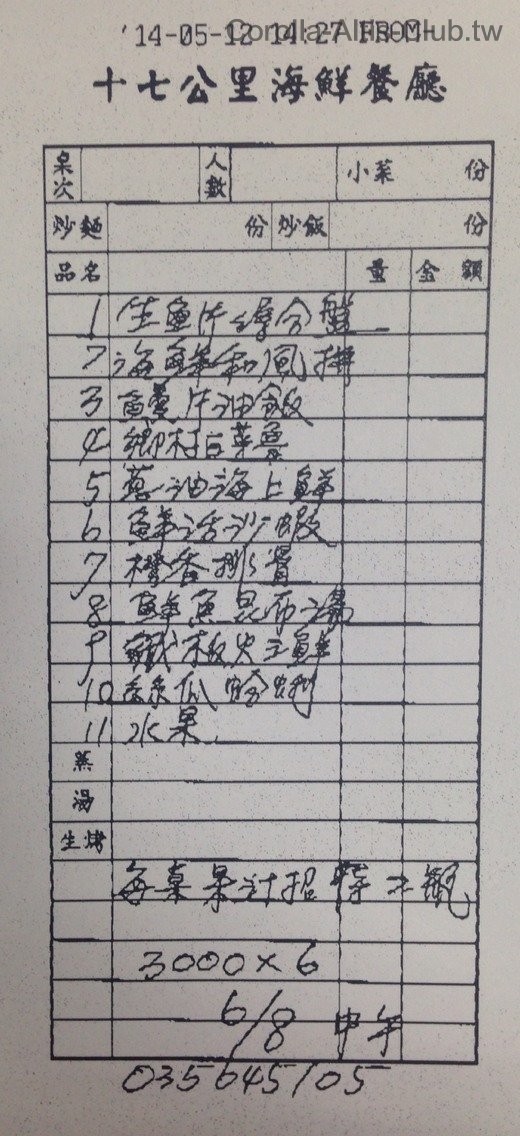 Corolla-Altis-Club.tw
'14-05-12 14:27 FROM-
十七公里海鮮餐廳
桌次 人數 小菜 份
炒麵 份 炒飯 份
品名 量 金額
1 生魚片綜合盤
2 海鮮和風拼
3 鰻片油飯
4 鄉村白菜魯
5 蔥油海上鮮
6 鮮活沙蝦
7 橙香排骨
8 鮮魚昆布湯
9 鐵板火三鮮
10 絲瓜蛤蜊
11 水果
蒸
湯
生烤
每桌果汁招待2瓶
3000×6
6/8 中午
035645105